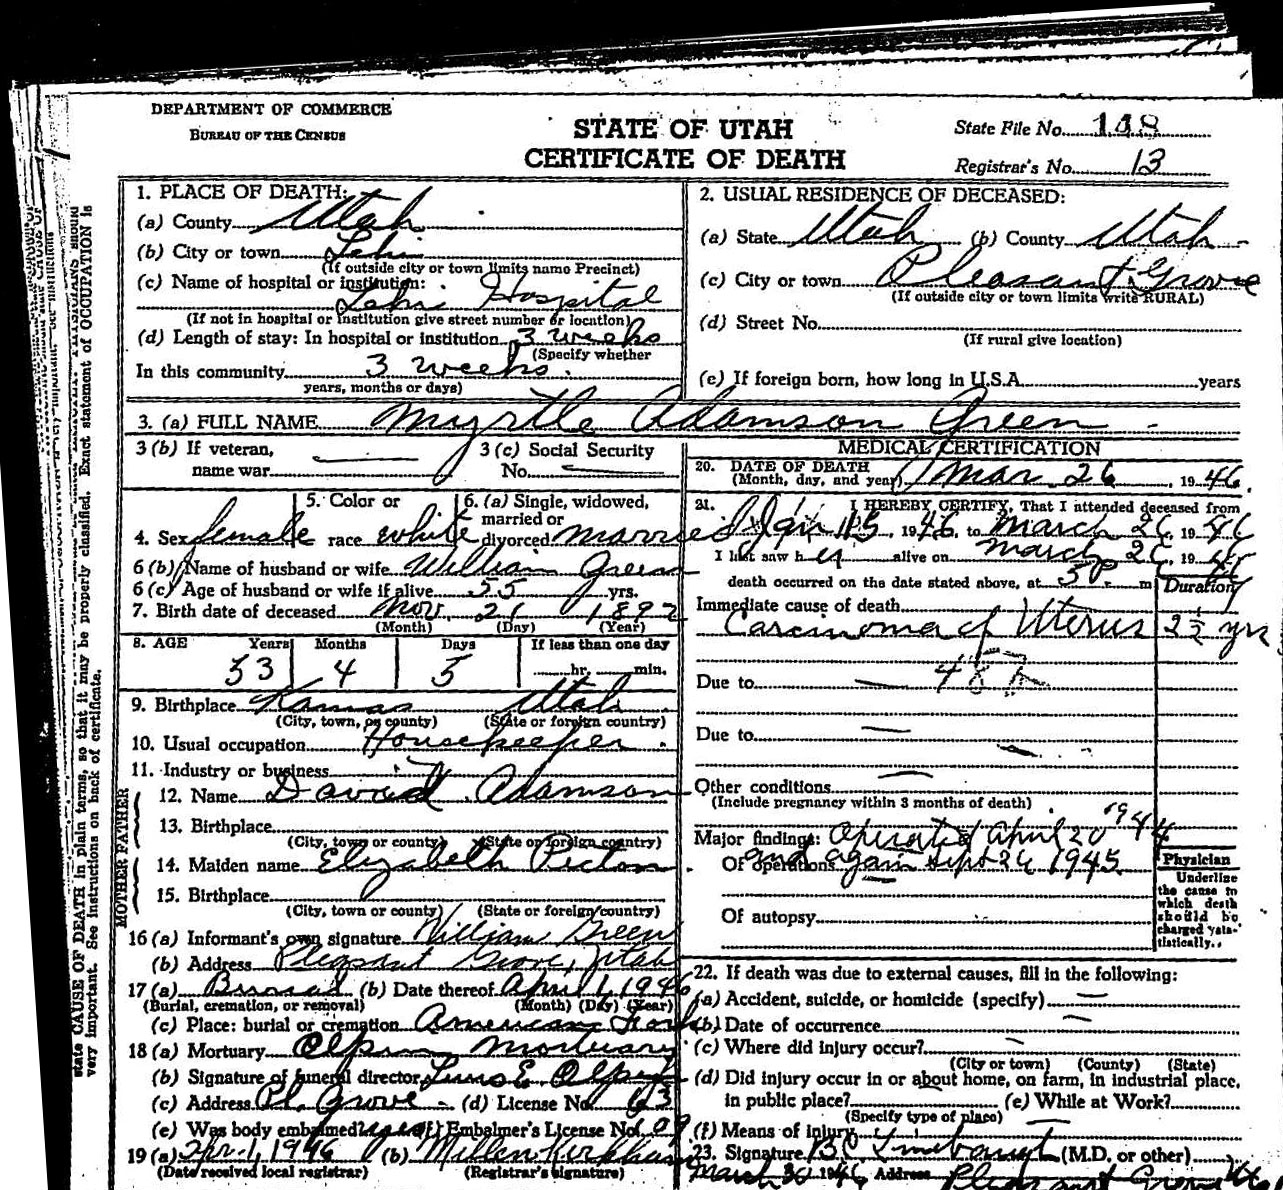 DEPARTMENT OF COMMERCE
BUREAU OF THE CENSUS
STATE OF UTAH
CERTIFICATE OF DEATH
State File No. 148
Registrar's No. 13
1. PLACE OF DEATH:
(a) County Utah
(b) City or town Lehi
(If outside city or town limits name Precinct)
(c) Name of hospital or institution:
Lehi Hospital
(If not in hospital or institution give street number or location)
(d) Length of stay: In hospital or institution 3 weeks
(Specify whether
In this community 3 weeks.
years, months or days)
2. USUAL RESIDENCE OF DECEASED:
(a) State Utah (b) County Utah
(c) City or town Pleasant Grove
(If outside city or town limits write RURAL)
(d) Street No.
(If rural give location)
(e) If foreign born, how long in U.S.A. years
3. (a) FULL NAME Myrtle Adamson Green
3 (b) If veteran, name war
3 (c) Social Security No.
4. Sex female
5. Color or race white
6. (a) Single, widowed, married or divorced married
6 (b) Name of husband or wife William Green
6 (c) Age of husband or wife if alive 55 yrs.
7. Birth date of deceased Nov. 21 1892
(Month) (Day) (Year)
8. AGE Years Months Days If less than one day
53 4 5 hr. min.
9. Birthplace Kamas Utah
(City, town, or county) (State or foreign country)
10. Usual occupation Housekeeper.
11. Industry or business
FATHER
12. Name David Adamson
13. Birthplace
(City, town or county) (State or foreign country)
MOTHER
14. Maiden name Elizabeth Picton
15. Birthplace
(City, town or county) (State or foreign country)
16 (a) Informant's own signature William Green
(b) Address Pleasant Grove, Utah
17 (a) Burial (b) Date thereof April 1, 1946
(Burial, cremation, or removal) (Month) (Day) (Year)
(c) Place: burial or cremation American Fork
18 (a) Mortuary Olpin Mortuary
(b) Signature of funeral director E. Olpin
(c) Address Pl. Grove (d) License No. 63
(e) Was body embalmed? yes (f) Embalmer's License No.
19 (a) Apr. 1, 1946 (b) Kirkham
(Date received local registrar) (Registrar's signature)
MEDICAL CERTIFICATION
20. DATE OF DEATH
(Month, day, and year) Mar. 26, 1946.
21. I HEREBY CERTIFY, That I attended deceased from
Jan 15 1946, to March 26, 1946
I last saw her alive on March 26, 1946
death occurred on the date stated above, at 5 P m
Duration
Immediate cause of death
Carcinoma of Uterus 2½ yrs
Due to 48
Due to
Other conditions
(Include pregnancy within 3 months of death)
Major findings: Operated April 20 1944
Of operations and again Sept 26 1945.
Of autopsy
Physician
Underline
the cause to
which death
should be
charged statistically.
22. If death was due to external causes, fill in the following:
(a) Accident, suicide, or homicide (specify)
(b) Date of occurrence
(c) Where did injury occur?
(City or town) (County) (State)
(d) Did injury occur in or about home, on farm, in industrial place,
in public place? (e) While at Work?
(Specify type of place)
(f) Means of injury
23. Signature (M.D. or other)
March 30 1946 Address Pleasant Grove
state CAUSE OF DEATH in plain terms, so that it may be properly classified. Exact statement of OCCUPATION is
very important. See instructions on back of certificate.